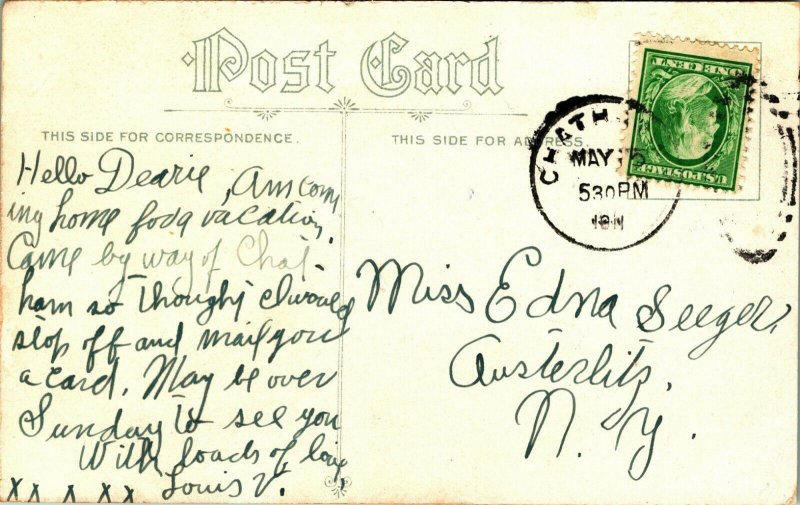 Post Card
THIS SIDE FOR CORRESPONDENCE.
THIS SIDE FOR ADDRESS.
Hello Dearie, Am com
ing home for a vacation.
Came by way of Chat
ham so thought I would
stop off and mail you
a card. May be over
Sunday to see you
With loads of love
XX X XX Louis V.
Miss Edna Seeger,
Austerlitz,
N. Y.
CHATH
MAY
530PM
1911
U.S. POSTAGE
ONE CENT